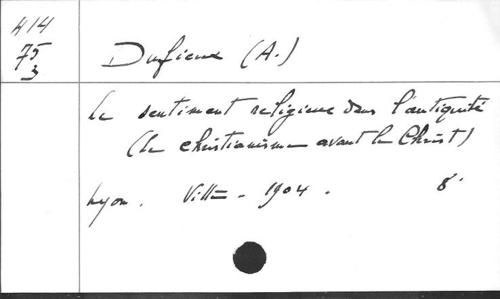 414
75
3
Dufieux (A.)
Le sentiment religieux dans l'antiquité
(le christianisme avant le Christ)
Lyon. Vitte - 1904. 8°